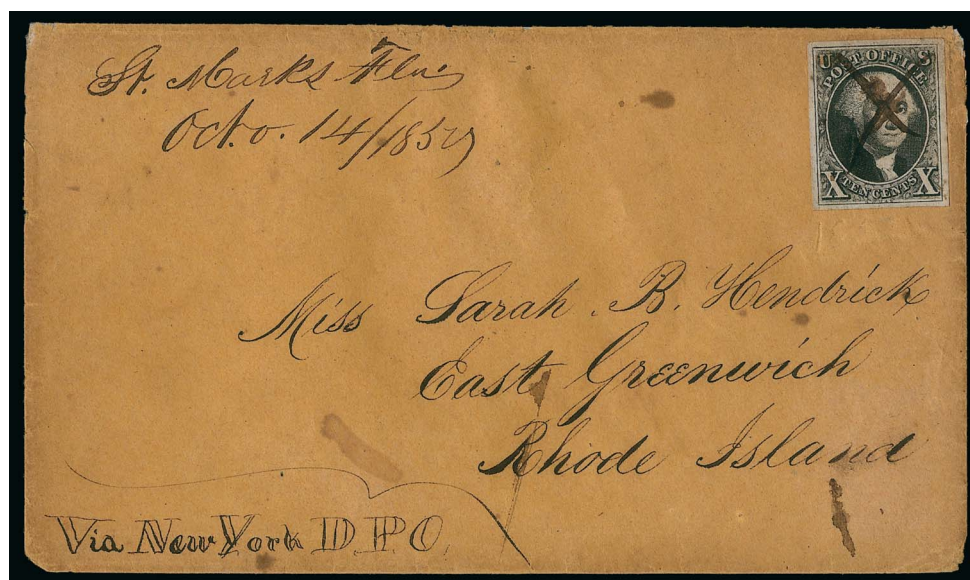 St. Marks Fla.
Oct. 14/1850
U S
POST OFFICE
X TEN CENTS X
Miss Sarah B. Hendrick
East Greenwich
Rhode Island
Via New York D P O.